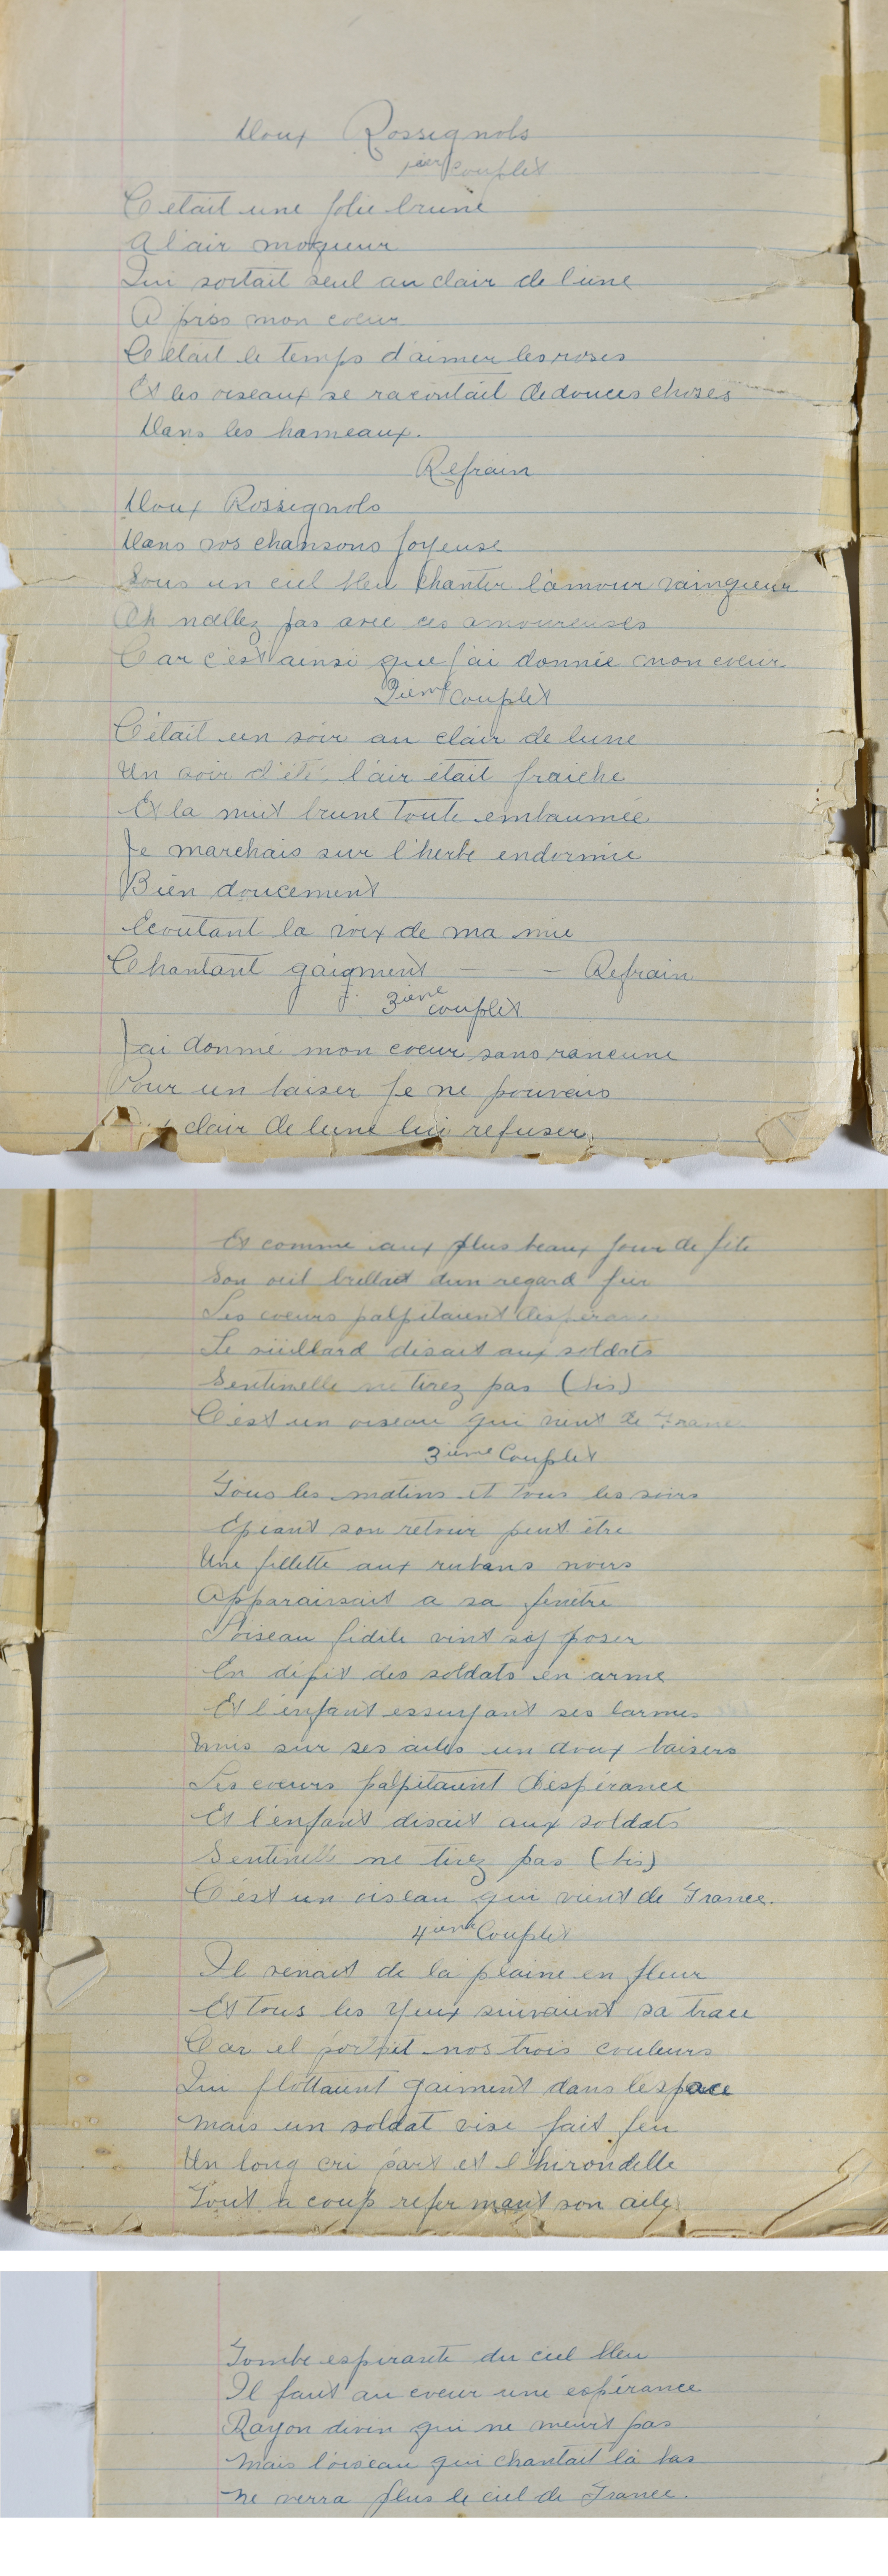 Doux Rossignols
1ier Couplet
C'était une jolie brune
A l'air moqueur
Qui sortait seul au clair de lune
A pris mon coeur
C'était le temps d'aimer les roses
Et les oiseaux se racontait de douces choses
Dans les hameaux.
Refrain
Doux Rossignols
Dans vos chansons joyeuse
Sous un ciel bleu chanter l'amour vainqueur
Oh n'allez pas avec ces amoureuses
Car c'est ainsi que j'ai donnée mon coeur
2ieme Couplet
C'était un soir au clair de lune
Un soir d'été l'air était fraiche
Et la nuit brune toute embaumée
Je marchais sur l'herbe endormie
Bien doucement
Ecoutant la voix de ma mie
Chantant gaigment - - - Refrain
3ieme couplet
J'ai donné mon coeur sans rancune
Pour un baiser je ne pouvais
clair de lune lui refuser
Et comme aux plus beaux jour de fête
Son oeil brillait d'un regard fier
Les coeurs palpitaient
Le vieillard disait aux soldats
Sentinelle ne tirez pas (bis)
C'est un oiseau qui vient de France
3ieme Couplet
Tous les matins et tous les soirs
Epiant son retour peut être
Une fillette aux rubans noirs
Apparaissait a sa fenêtre
L'oiseau fidèle vint s'y poser
En dépit des soldats en arme
Et l'enfant essuyant ses larmes
Mis sur ses ailes un doux baisers
Les coeurs palpitaient d'espérance
Et l'enfant disait aux soldats
Sentinelle ne tirez pas (bis)
C'est un oiseau qui vient de France.
4ieme Couplet
Il venait de la plaine en fleur
Et tous les yeux suivaient sa trace
Car il portait nos trois couleurs
Qui flottaient gaiment dans l'espace
Mais un soldat vise fait feu
Un long cri part et l'hirondelle
Tout a coup refermant son aile
Tombe espirante du ciel bleu
Il faut au coeur une espérance
Rayon divin qui ne meurt pas
Mais l'oiseau qui chantait là bas
Ne verra plus le ciel de France.